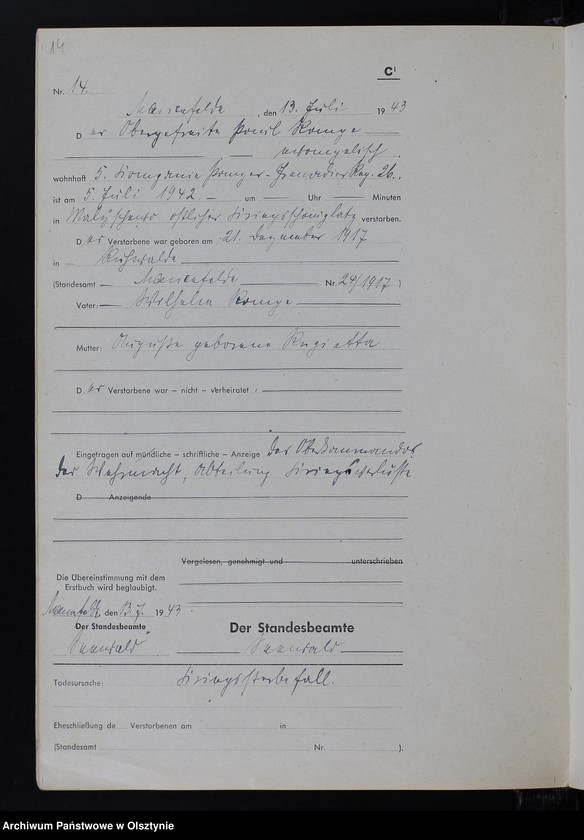 14
C¹
Nr. 14.
Marienfelde, den 13. Juli 1943
D er Obergefreite Paul Romge
evangelisch
wohnhaft 5. Kompanie Panzer-Grenadier Reg. 26.
ist am 5. Juli 1942 um Uhr Minuten
in östlicher Kriegsschauplatz verstorben.
D er Verstorbene war geboren am 21. Dezember 1917
in
(Standesamt Marienfelde Nr. 24/1917)
Vater: Wilhelm Romge
Mutter: Auguste geborene
D er Verstorbene war – nicht – verheiratet.
Eingetragen auf mündliche – schriftliche – Anzeige des Oberkommandos
der Wehrmacht, Abteilung Kriegsverluste
D Anzeigende
Vorgelesen, genehmigt und unterschrieben
Die Übereinstimmung mit dem
Erstbuch wird beglaubigt.
Marienfelde, den 13.7. 1943.
Der Standesbeamte
Der Standesbeamte
Todesursache: Kriegssterbefall.
Eheschließung de Verstorbenen am in
(Standesamt Nr. ).
Archiwum Państwowe w Olsztynie